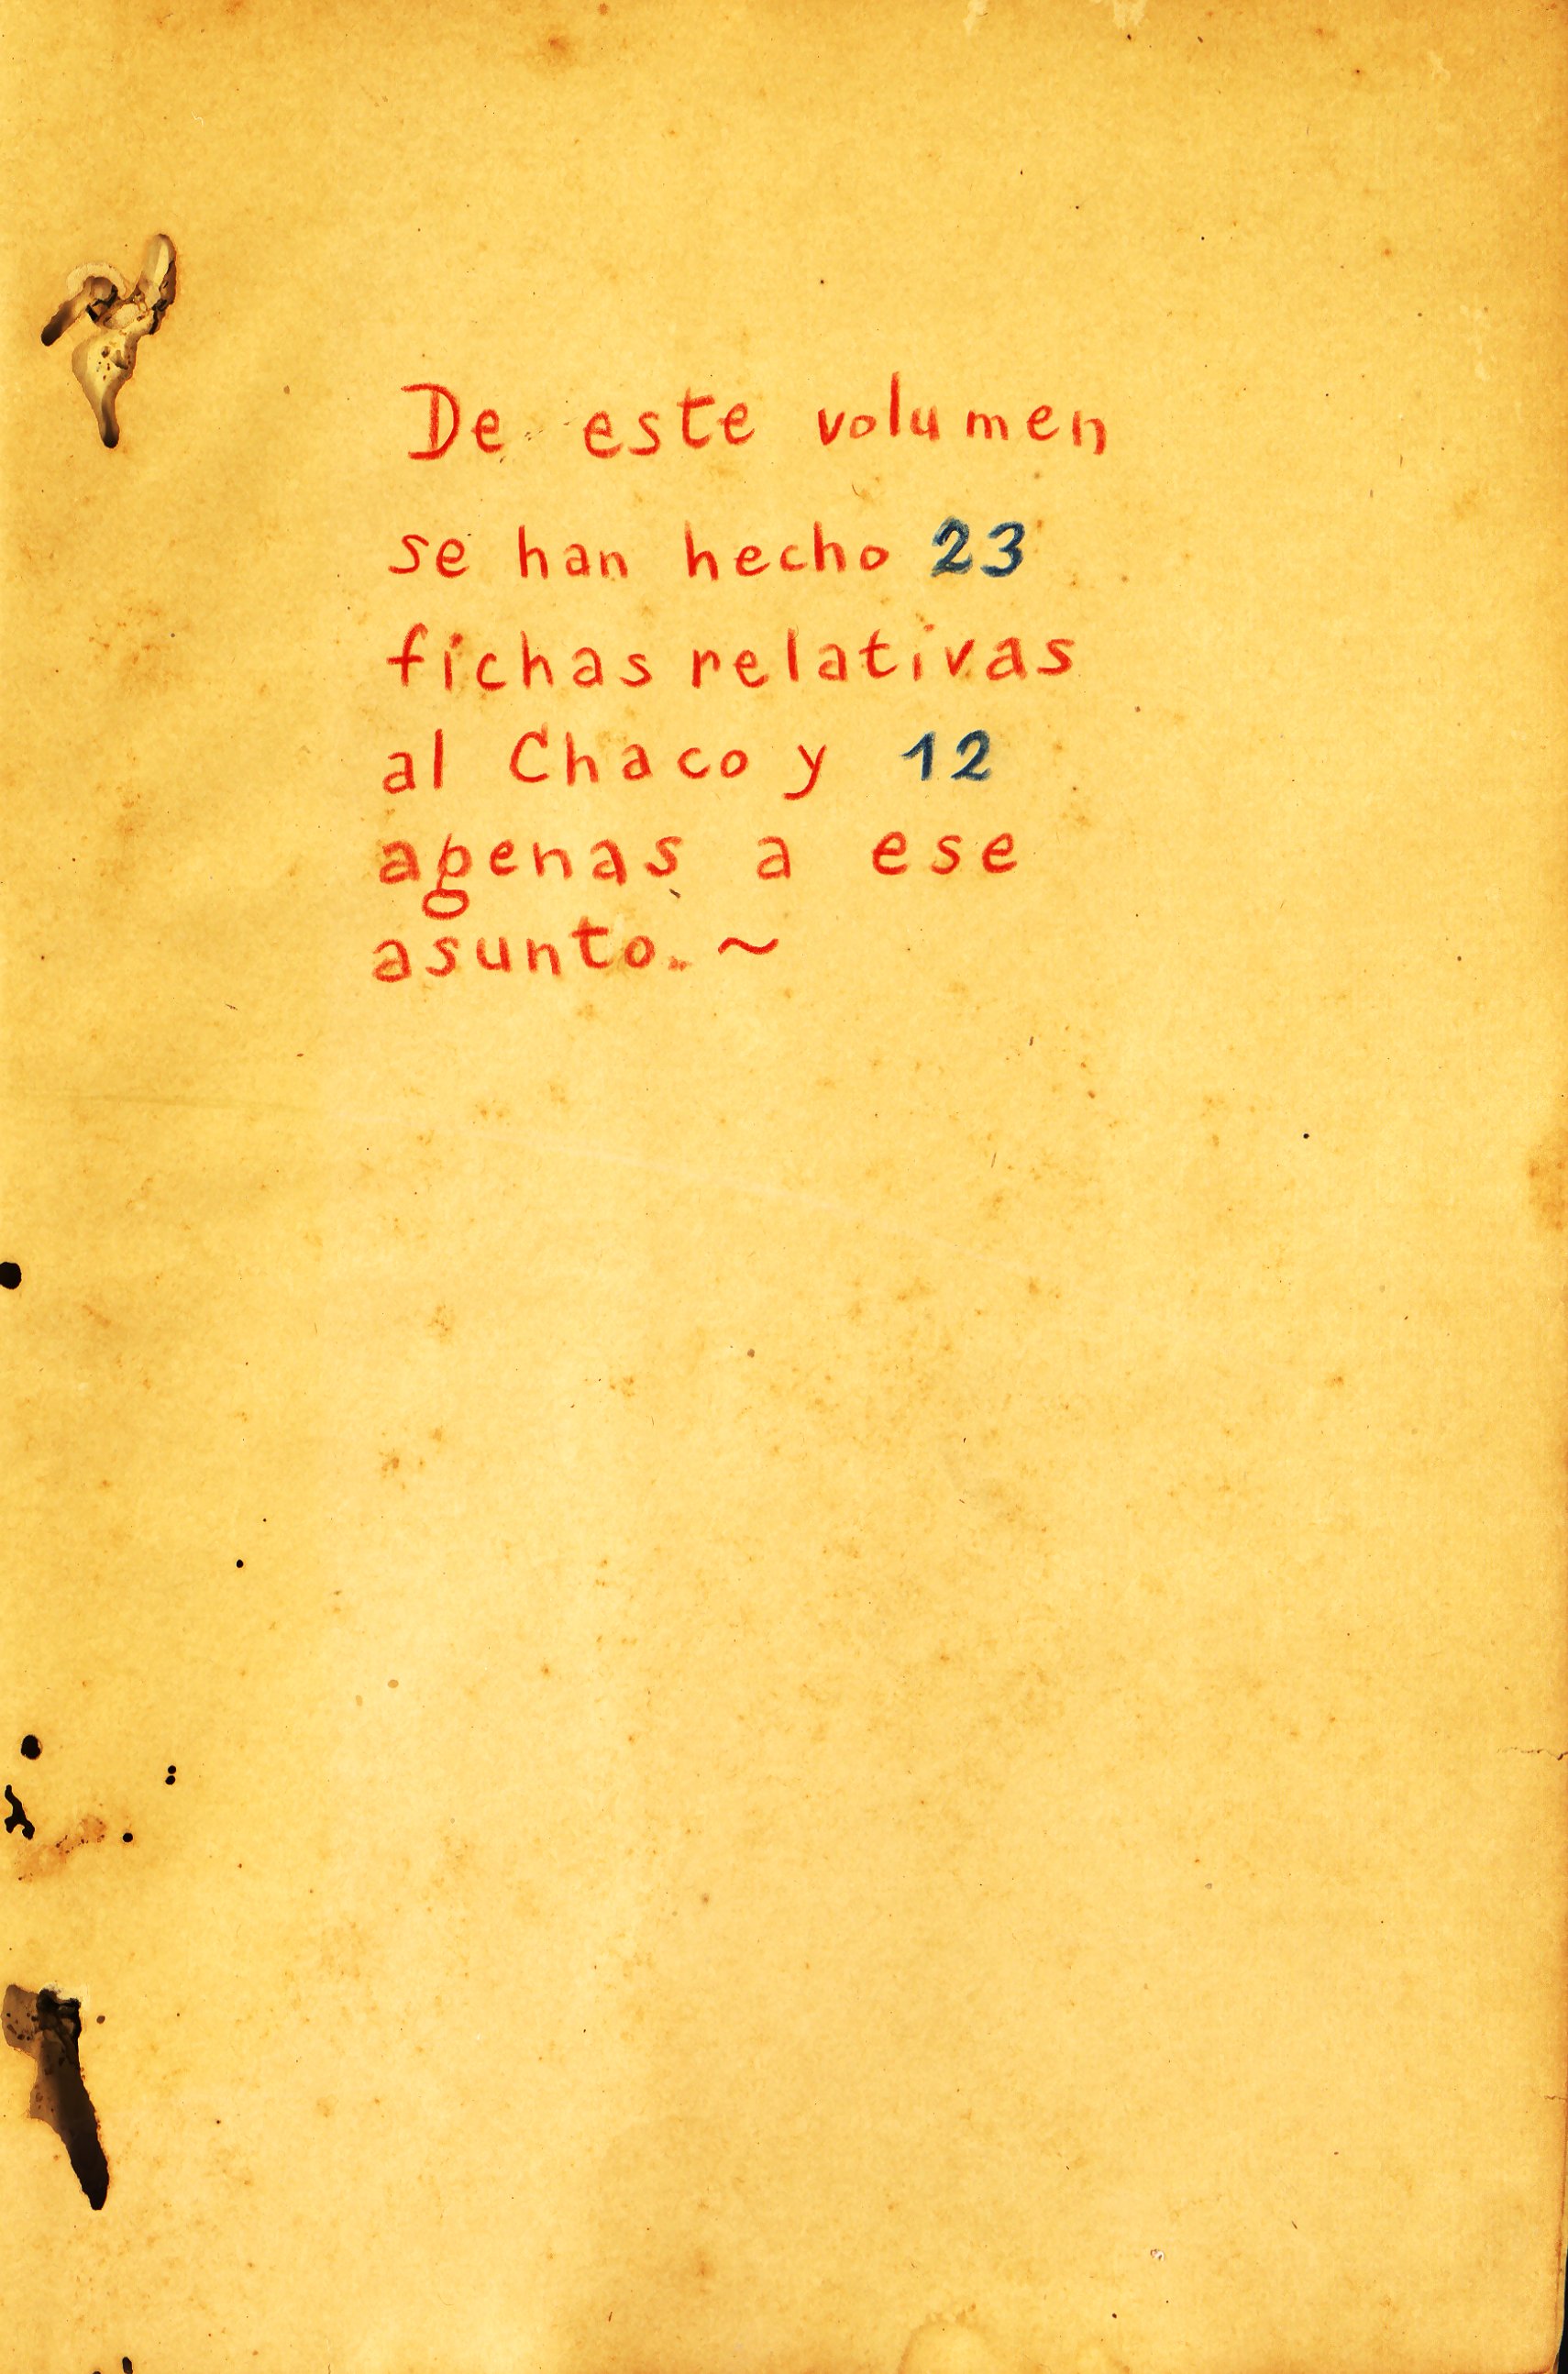 De este volumen
se han hecho 23
fichas relativas
al Chaco y 12
agenas a ese
asunto. ~